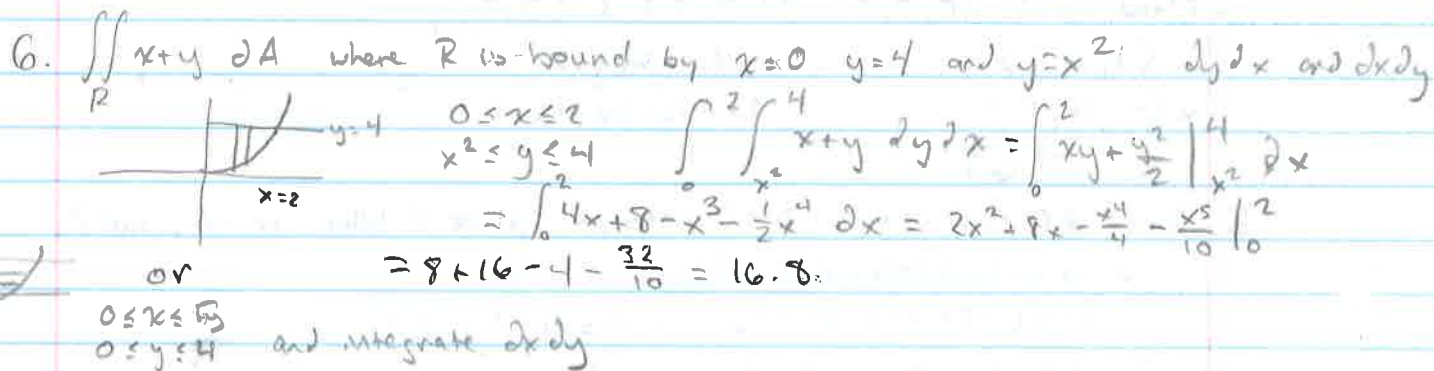 6. ∬_R x+y ∂A where R is bound by x=0 y=4 and y=x². dydx and dxdy
y=4
x=2
0≤x≤2
x²≤y≤4
∫_0^2 ∫_{x²}^4 x+y dydx = ∫_0^2 xy + y²/2 |_{x²}^4 ∂x
= ∫_0^2 4x+8-x³-½x⁴ ∂x = 2x²+8x-x⁴/4-x⁵/10 |_0^2
= 8+16-4-32/10 = 16.8.
or
0≤x≤√y
0≤y≤4 and integrate ∂x∂y